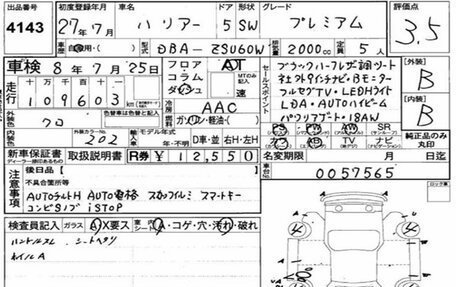 出品番号 4143
初度登録年月 27年7月 車名 ハリアー ドア 5 形状 SW グレード プレミアム 評価点 3.5
自家用 型式 DBA-ZSU60W 排気量 2000cc 定員 5人
車検 8年7月25日 フロア コラム ダッシュ AT MTのみ記入 速
走行 109603 冷房 AAC
セールスポイント ブラックハーフレザー調シート
社外9インチナビ・Bモニター
フルセグTV・LEDHライト
LDA・AUTOハイビーム
パワーバックドア・18AW
外装 B
内装 B
ガソリン・軽油
外色 クロ 色替を色替と記入
内色 外装カラーNo. 202 輸入車 モデル年式 年 D車・並 右H・左H
PS PW AW SR ルーフ
AB TV ナビ 純正品のみ丸印
新車保証書 取扱説明書 R券 ¥12,550 名変期限 月 日迄
注意事項 後日品 0057565
不具合箇所等
AUTOライトH AUTO電格 スカッフイルミ スマートキー
コンビタンブ iSTOP
検査員記入 ガラス A X要ス 室内シート A・コゲ・穴・汚れ・破れ
ハンドルスレ シートヘタリ
ホイルA